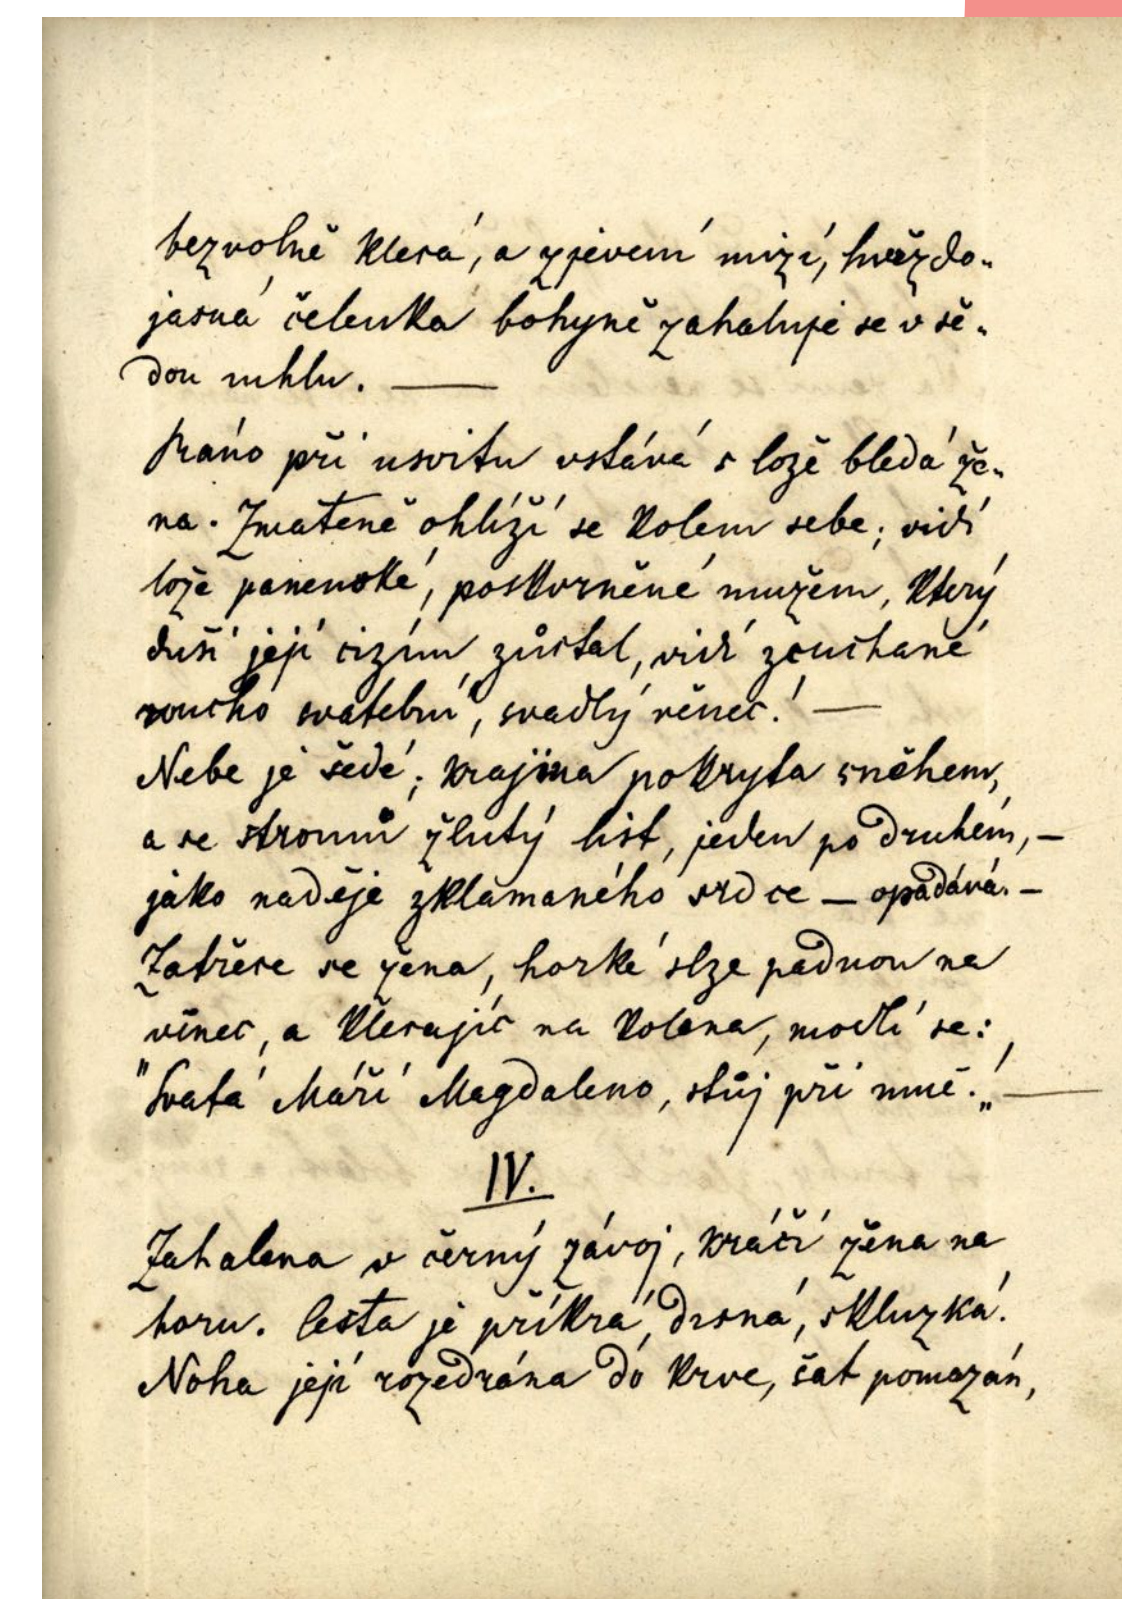 bezvolně klesá, a zjevení mizí, hvězdo-
jasná čelenka bohyně zahaluje se v še-
dou mhlu. —
Ráno při usvitu vstává s lože bledá že-
na. Zmateně ohlíží se kolem sebe; vidí
lože panenské, poskvrněné mužem, který
duši její cizím zůstal, vidí zcuchané
roucho svatební, svadlý věnec! —
Nebe je šedé; krajina pokryta sněhem,
a se stromů žlutý list, jeden po druhém, —
jako naděje zklamaného srdce — opadává. —
Zatřese se žena, horké slze padnou na
věnec, a klesajíc na kolena, modlí se:
"Svatá Máří Magdaleno, stůj při mně!„ —
IV.
Zahalena v černý závoj, kráčí žena na
horu. Cesta je příkrá, drsná, skluzká.
Noha její rozedrána do krve, šat pomazán,